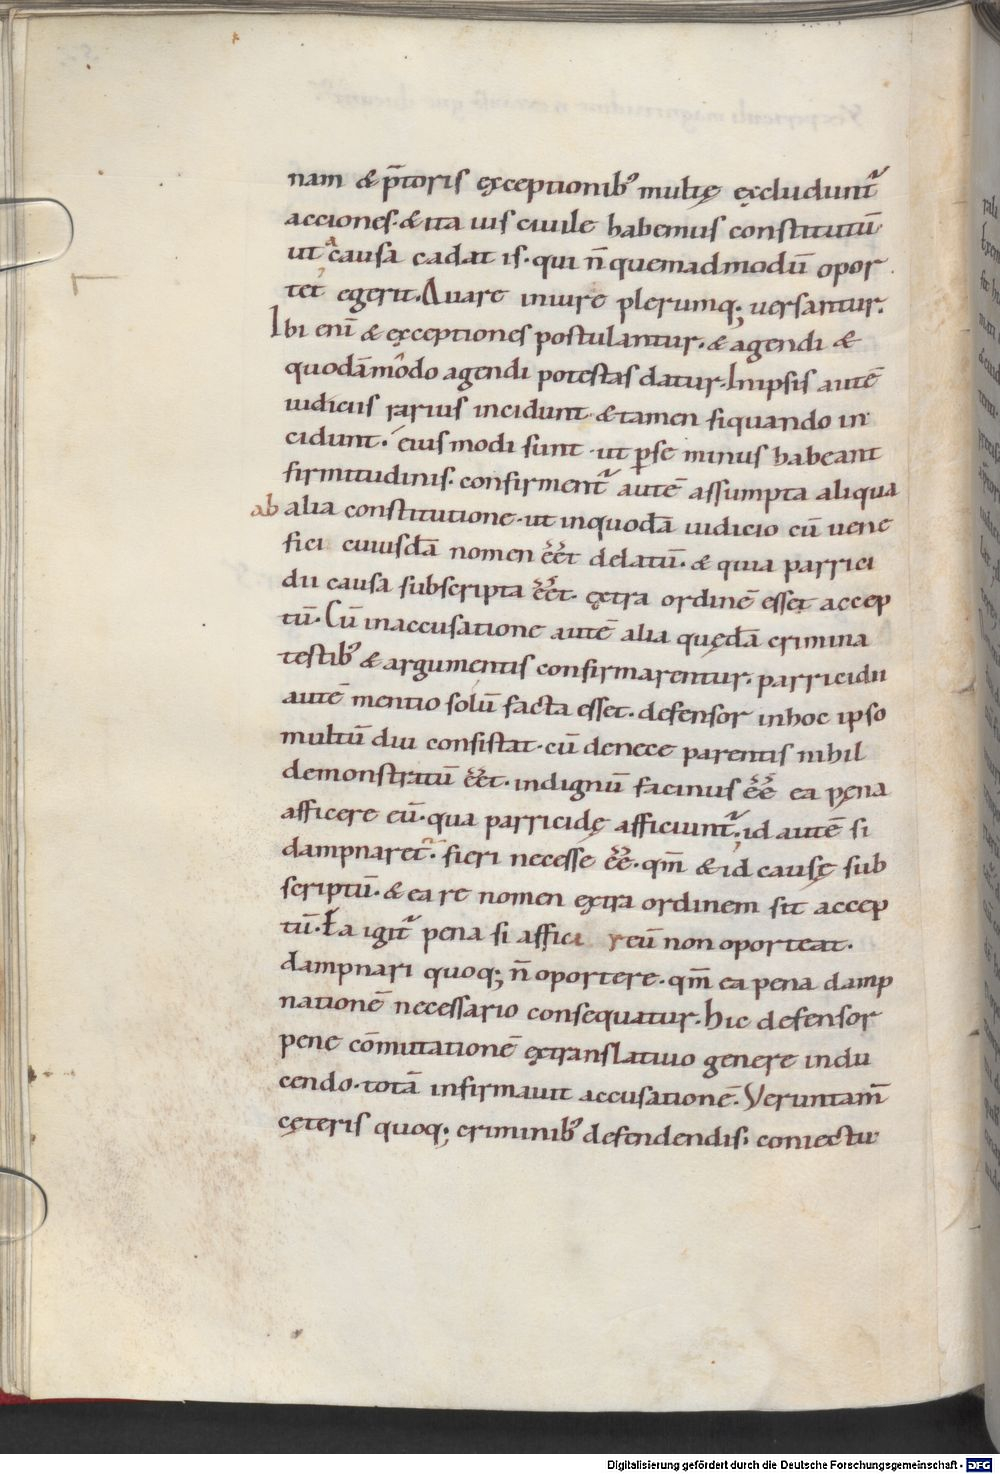 nam & p̄toris exceptionib᷒ multę excludunt᷑
acciones · & ita ius ciuile habemus constitutū ·
ut causa cadat is · qui n̄ quemadmodū opor
tet egerit. Quare iniure plerumq; uersantur.
Ibi eni̅ & exceptiones postulantur. & agendi &
quodāmodo agendi potestas datur. Inipsis autē
iudiciis rarius incidunt & tamen siquando in
cidunt. eius modi sunt · ut p̱se minus habeant
firmitudinis. confirment᷑ autē assumpta aliqua
ab alia constitutione · ut inquodā iudicio cū uene
fici cuiusdā nomen ee̅t delatū. & quia parrici
dii causa subscripta ee̅t. extra ordinē esset accep
tū. Cū inaccusatione autē alia quędā crimina
testib᷒ & argumentis confirmarentur. parricidii
autē mentio solū facta esset. defensor inhoc ipso
multū diu consistat · cū denece parentis nihil
demonstratū ee̅t · indignū facinus ee̅ ea pęna
afficere eū · qua parricidę afficiunt᷑. id autē si
dampnaret᷑. fieri necesse ee̅. qm̄ & id causę sub
scriptū. & ea re nomen extra ordinem sit accep
tū. Ea igit᷑ pena si affici reū non oporteat.
dampnari quoq; n̄ oportere. qm̄ ea pena damp
nationē necessario consequatur. hic defensor
pene cōmutationē extranslatiuo genere indu
cendo. totā infirmauit accusationē. Veruntam̄
cęteris quoq; criminib᷒ defendendis. coniectu
Digitalisierung gefördert durch die Deutsche Forschungsgemeinschaft - DFG